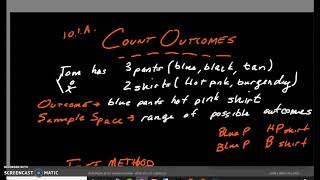 10.1.A.
COUNT OUTCOMES
Tom has 3 pants (blue, black, tan)
2 shirts (hot pnk, burgendy)
OUTCOME → blue pants hot pink shirt
SAMPLE SPACE → range of possible outcomes
Blue P HP shirt
Blue P B shirt
METHOD
RECORDED WITH
SCREENCAST MATIC